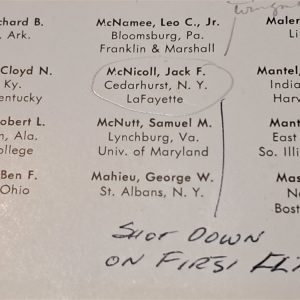 chard B.
, Ark.
Cloyd N.
Ky.
entucky
obert L.
n, Ala.
ollege
Ben F.
Ohio
McNamee, Leo C., Jr.
Bloomsburg, Pa.
Franklin & Marshall
McNicoll, Jack F.
Cedarhurst, N. Y.
LaFayette
McNutt, Samuel M.
Lynchburg, Va.
Univ. of Maryland
Mahieu, George W.
St. Albans, N. Y.
Maler
Li
Mantel,
India
Harv
Mant
East
So. Illi
Mas
Ne
Bost
SHOT DOWN
ON FIRST FLI